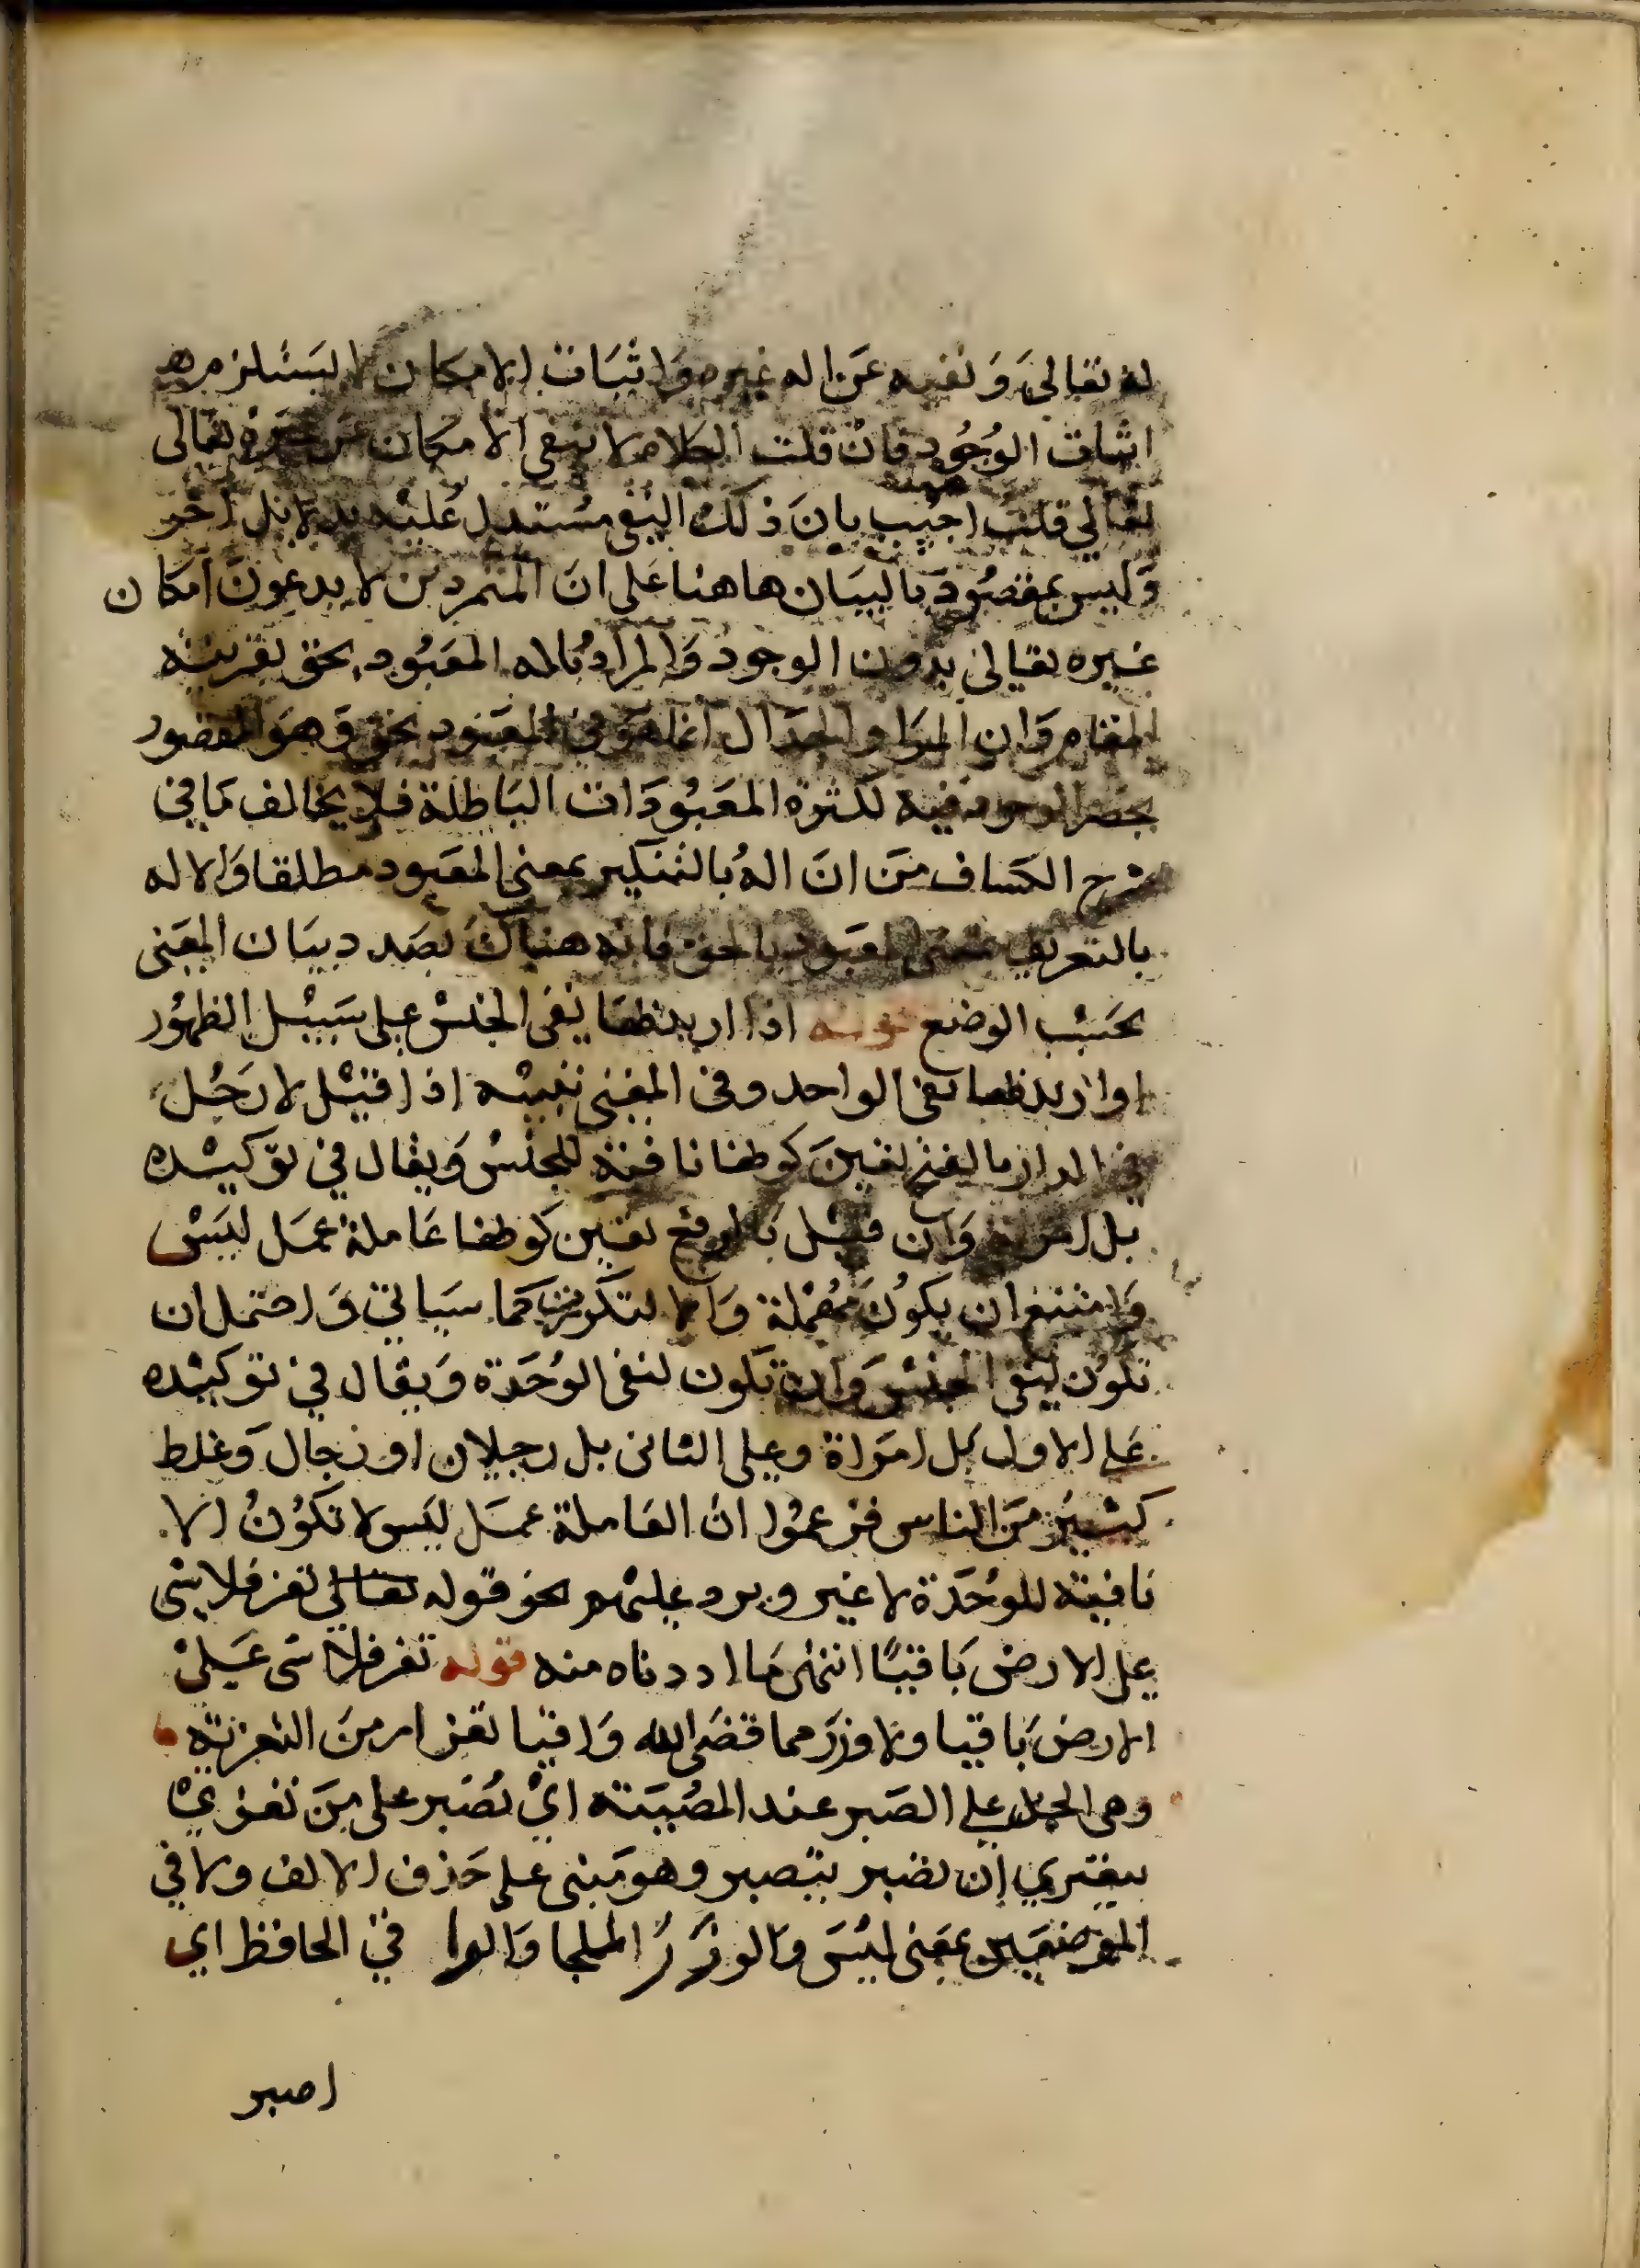 له تعالى ونفيه عن اله غيره واثبات الامكان لا يستلزم
اثبات الوجود فان قلت الكلام لا ينفي الامكان عن غيره تعالى
تعالى قلت اجيب بان ذلك النفي مستدل عليه بدلائل اخر
وليس بمقصود بالبيان هاهنا على ان المتمردين لا يدعون امكان
غيره تعالى بدون الوجود والمراد باله المعبود بحق بقرينة
المقام وان المرا والجدال انما هو في المعبود بحق وهو المقصور
بحصر الوجود فيه لكثرة المعبودات الباطلة فلا يخالف ما في
شرح الكساف من ان اله بالتنكير بمعنى المعبود مطلقا والاله
بالتعريف بمعنى المعبود بالحق فانه هناك بصدد بيان المعنى
بحسب الوضع قوله اذا اريد بها نفي الجنس على سبيل الظهور
او اريد بها نفي الواحد وفي المغني تنبيه اذا قيل لا رجل
في الدار بالفتح تعين كونها نافية للجنس ويقال في توكيده
بل امراة وان قيل بالرفع تعين كونها عاملة عمل ليس
وامتنع ان يكون مهملة والا لتكررت كما سياتي واحتمل ان
تكون لنفي الجنس وان تكون لنفي الوحدة ويقال في توكيده
على الاول بل امراة وعلى الثاني بل رجلان او رجال وغلط
كثير من الناس فزعموا ان العاملة عمل ليس لا تكون الا
نافية للوحدة لا غير ويرد عليهم نحو قوله تعالى تعز فلا شي
على الارض باقيا انتهى ما اردناه منه قوله تعز فلا شي على
الارض باقيا ولا وزر مما قضى الله واقيا تعز امر من التعزية
وهي الحمل على الصبر عند المصيبة اي تصبر على من تعزي
يعتري ان تصبر يتصبر وهو مبني على حذف الالف ولا في
الموضعين بمعنى ليس والوزر الملجا والوا في الحافظ اي
اصبر